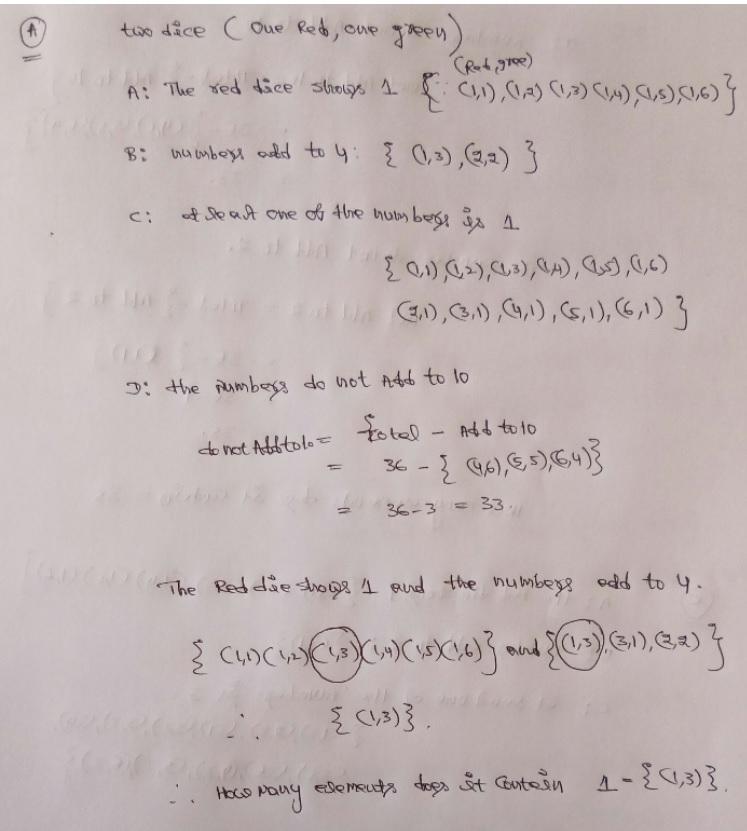 A
two dice (One Red, one green)
(Red, gree)
A: The red dice shows 1 {: (1,1), (1,2) (1,3) (1,4), (1,5), (1,6)}
B: numbers add to 4: { (1,3), (2,2) }
C: at least one of the numbers is 1
{ (1,1), (1,2), (1,3), (1,4), (1,5), (1,6)
(2,1), (3,1), (4,1), (5,1), (6,1) }
D: the numbers do not Add to 10
do not Add to 10 = total - Add to 10
= 36 - { (4,6), (5,5), (6,4)}
= 36-3 = 33.
The Red die shows 1 and the numbers add to 4.
{ (1,1) (1,2) (1,3) (1,4) (1,5) (1,6)} and {(1,3), (3,1), (2,2) }
∴ { (1,3)}.
∴ How many elements does it contain 1 - {(1,3)}.